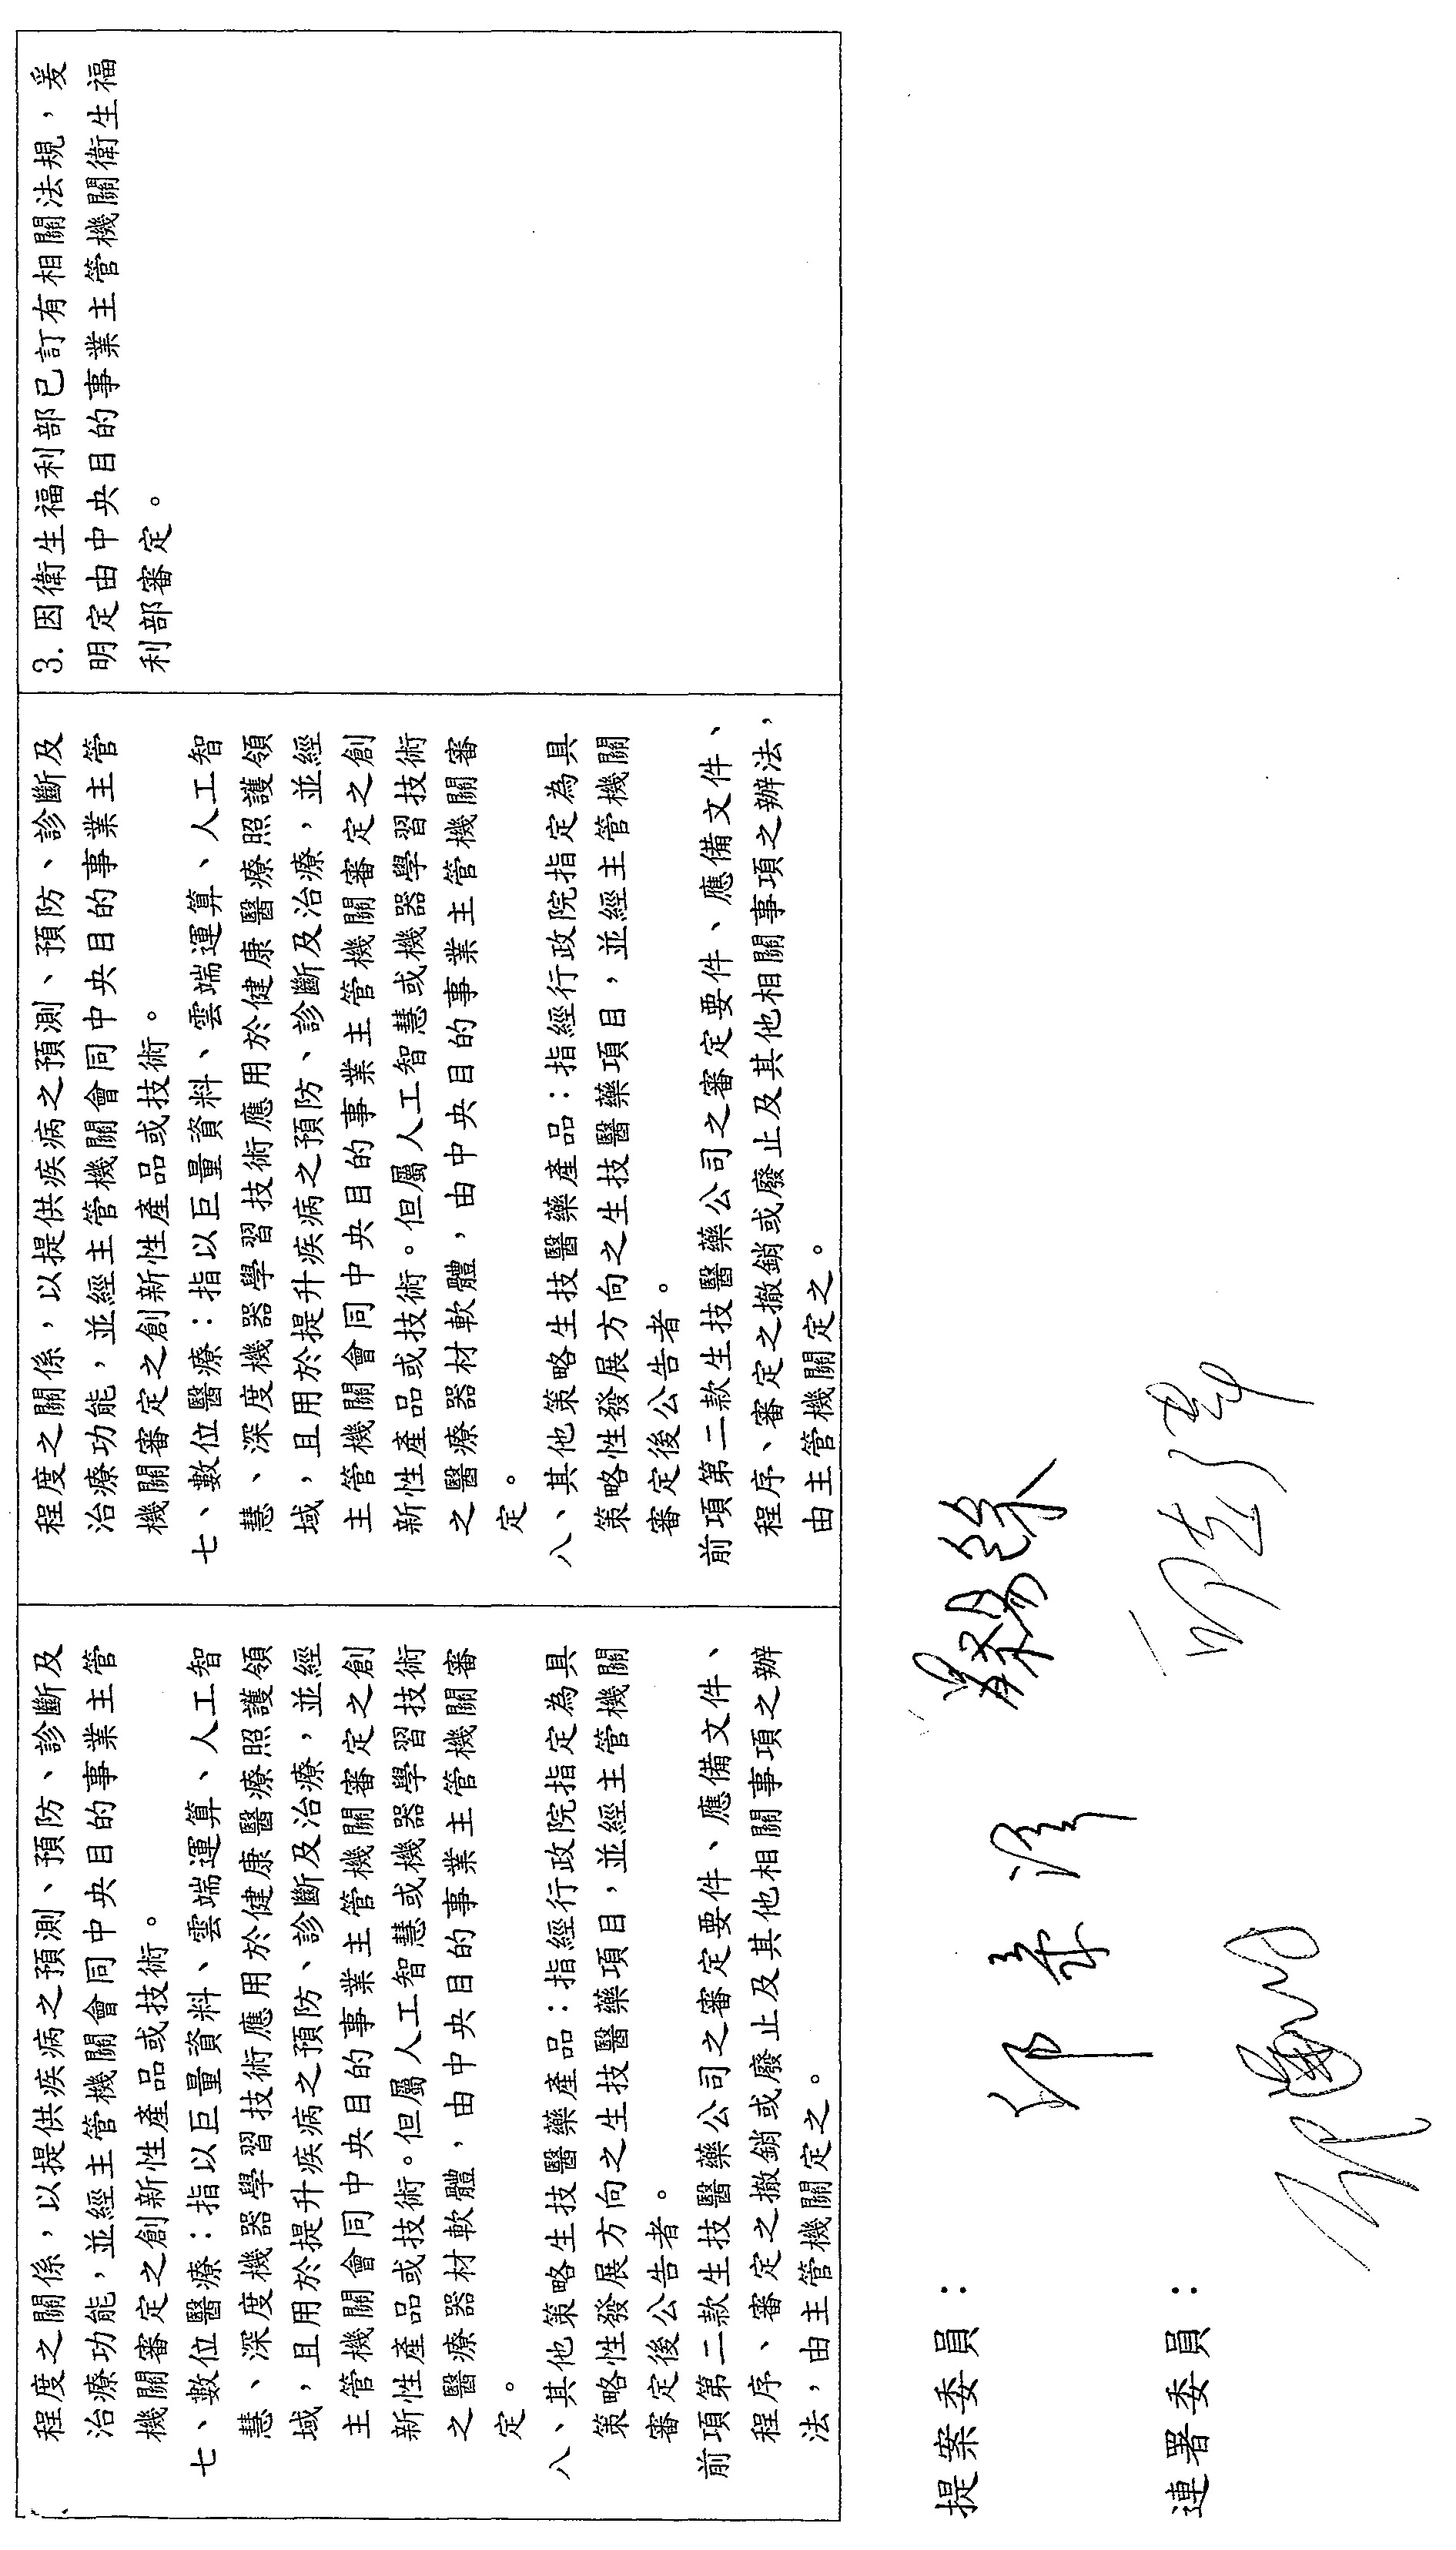 程度之關係，以提供疾病之預測、預防、診斷及
治療功能，並經主管機關會同中央目的事業主管
機關審定之創新性產品或技術。
七、數位醫療：指以巨量資料、雲端運算、人工智
慧、深度機器學習技術應用於健康醫療照護領
域，且用於提升疾病之預防、診斷及治療，並經
主管機關會同中央目的事業主管機關審定之創
新性產品或技術。但屬人工智慧或機器學習技術
之醫療器材軟體，由中央目的事業主管機關審
定。
八、其他策略生技醫藥產品：指經行政院指定為具
策略性發展方向之生技醫藥項目，並經主管機關
審定後公告者。
前項第二款生技醫藥公司之審定要件、應備文件、
程序、審定之撤銷或廢止及其他相關事項之辦
法，由主管機關定之。
程度之關係，以提供疾病之預測、預防、診斷及
治療功能，並經主管機關會同中央目的事業主管
機關審定之創新性產品或技術。
七、數位醫療：指以巨量資料、雲端運算、人工智
慧、深度機器學習技術應用於健康醫療照護領
域，且用於提升疾病之預防、診斷及治療，並經
主管機關會同中央目的事業主管機關審定之創
新性產品或技術。但屬人工智慧或機器學習技術
之醫療器材軟體，由中央目的事業主管機關審
定。
八、其他策略生技醫藥產品：指經行政院指定為具
策略性發展方向之生技醫藥項目，並經主管機關
審定後公告者。
前項第二款生技醫藥公司之審定要件、應備文件、
程序、審定之撤銷或廢止及其他相關事項之辦法，
由主管機關定之。
3.因衛生福利部已訂有相關法規，爰
明定由中央目的事業主管機關衛生福
利部審定。
提案委員： 蔡易餘
連署委員：